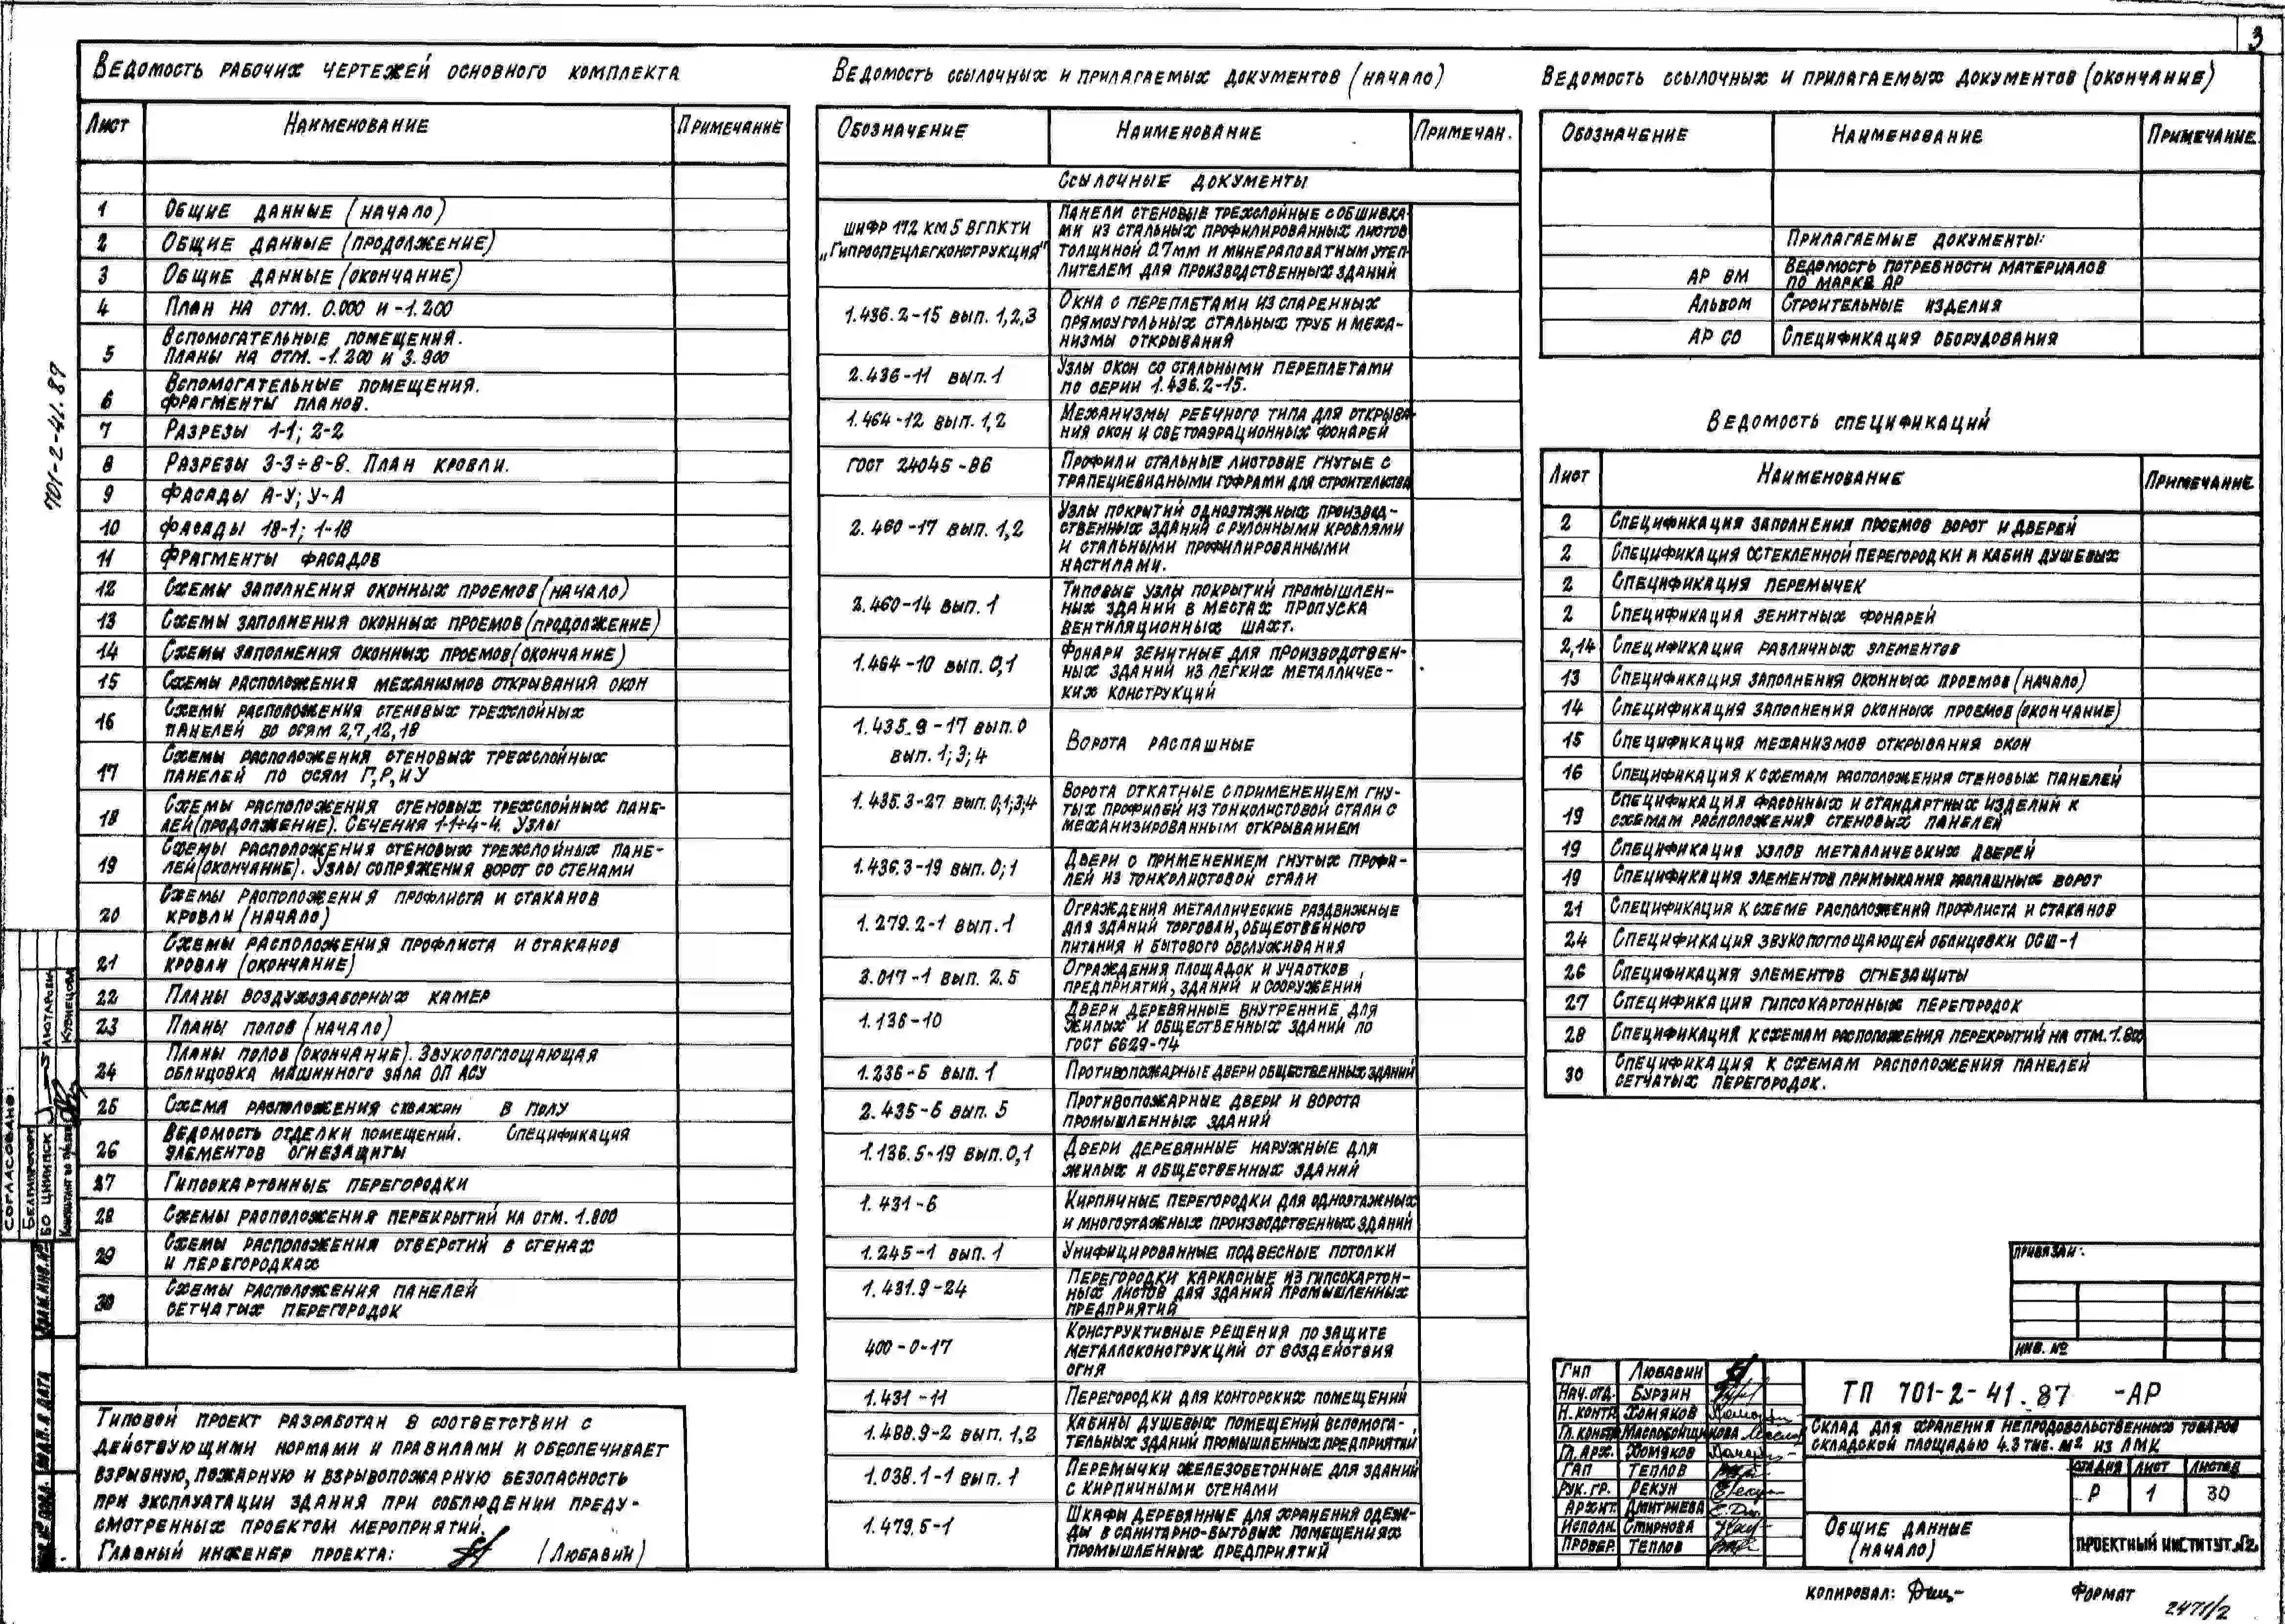 3
ВЕДОМОСТЬ РАБОЧИХ ЧЕРТЕЖЕЙ ОСНОВНОГО КОМПЛЕКТА
ЛИСТ НАИМЕНОВАНИЕ ПРИМЕЧАНИЕ
1 ОБЩИЕ ДАННЫЕ (НАЧАЛО)
2 ОБЩИЕ ДАННЫЕ (ПРОДОЛЖЕНИЕ)
3 ОБЩИЕ ДАННЫЕ (ОКОНЧАНИЕ)
4 ПЛАН НА ОТМ. 0.000 И -1.200
ВСПОМОГАТЕЛЬНЫЕ ПОМЕЩЕНИЯ.
5 ПЛАНЫ НА ОТМ. -1.200 И 3.900
ВСПОМОГАТЕЛЬНЫЕ ПОМЕЩЕНИЯ.
6 ФРАГМЕНТЫ ПЛАНОВ.
7 РАЗРЕЗЫ 1-1; 2-2
8 РАЗРЕЗЫ 3-3÷8-8. ПЛАН КРОВЛИ.
9 ФАСАДЫ А-У; У-А
10 ФАСАДЫ 18-1; 1-18
11 ФРАГМЕНТЫ ФАСАДОВ
12 СХЕМЫ ЗАПОЛНЕНИЯ ОКОННЫХ ПРОЕМОВ (НАЧАЛО)
13 СХЕМЫ ЗАПОЛНЕНИЯ ОКОННЫХ ПРОЕМОВ (ПРОДОЛЖЕНИЕ)
14 СХЕМЫ ЗАПОЛНЕНИЯ ОКОННЫХ ПРОЕМОВ (ОКОНЧАНИЕ)
15 СХЕМЫ РАСПОЛОЖЕНИЯ МЕХАНИЗМОВ ОТКРЫВАНИЯ ОКОН
16 СХЕМЫ РАСПОЛОЖЕНИЯ СТЕНОВЫХ ТРЕХСЛОЙНЫХ
ПАНЕЛЕЙ ПО ОСЯМ 2,7,12,18
СХЕМЫ РАСПОЛОЖЕНИЯ СТЕНОВЫХ ТРЕХСЛОЙНЫХ
17 ПАНЕЛЕЙ ПО ОСЯМ Г,Р,И У
СХЕМЫ РАСПОЛОЖЕНИЯ СТЕНОВЫХ ТРЕХСЛОЙНЫХ ПАНЕ-
18 ЛЕЙ (ПРОДОЛЖЕНИЕ). СЕЧЕНИЯ 1-1÷4-4. УЗЛЫ
СХЕМЫ РАСПОЛОЖЕНИЯ СТЕНОВЫХ ТРЕХСЛОЙНЫХ ПАНЕ-
19 ЛЕЙ (ОКОНЧАНИЕ). УЗЛЫ СОПРЯЖЕНИЯ ВОРОТ СО СТЕНАМИ
СХЕМЫ РАСПОЛОЖЕНИЯ ПРОФЛИСТА И СТАКАНОВ
20 КРОВЛИ (НАЧАЛО)
СХЕМЫ РАСПОЛОЖЕНИЯ ПРОФЛИСТА И СТАКАНОВ
21 КРОВЛИ (ОКОНЧАНИЕ)
22 ПЛАНЫ ВОЗДУХОЗАБОРНЫХ КАМЕР
23 ПЛАНЫ ПОЛОВ (НАЧАЛО)
ПЛАНЫ ПОЛОВ (ОКОНЧАНИЕ). ЗВУКОПОГЛОЩАЮЩАЯ
24 ОБЛИЦОВКА МАШИННОГО ЗАЛА ОП АСУ
25 СХЕМА РАСПОЛОЖЕНИЯ СКВАЖИН В ПОЛУ
ВЕДОМОСТЬ ОТДЕЛКИ ПОМЕЩЕНИЙ. СПЕЦИФИКАЦИЯ
26 ЭЛЕМЕНТОВ ОГНЕЗАЩИТЫ
27 ГИПСОКАРТОННЫЕ ПЕРЕГОРОДКИ
28 СХЕМЫ РАСПОЛОЖЕНИЯ ПЕРЕКРЫТИЙ НА ОТМ. 1.800
СХЕМЫ РАСПОЛОЖЕНИЯ ОТВЕРСТИЙ В СТЕНАХ
29 И ПЕРЕГОРОДКАХ
СХЕМЫ РАСПОЛОЖЕНИЯ ПАНЕЛЕЙ
30 СЕТЧАТЫХ ПЕРЕГОРОДОК
ТИПОВОЙ ПРОЕКТ РАЗРАБОТАН В СООТВЕТСТВИИ С
ДЕЙСТВУЮЩИМИ НОРМАМИ И ПРАВИЛАМИ И ОБЕСПЕЧИВАЕТ
ВЗРЫВНУЮ, ПОЖАРНУЮ И ВЗРЫВОПОЖАРНУЮ БЕЗОПАСНОСТЬ
ПРИ ЭКСПЛУАТАЦИИ ЗДАНИЯ ПРИ СОБЛЮДЕНИИ ПРЕДУ-
СМОТРЕННЫХ ПРОЕКТОМ МЕРОПРИЯТИЙ.
ГЛАВНЫЙ ИНЖЕНЕР ПРОЕКТА: (ЛЮБАВИН)
ВЕДОМОСТЬ ССЫЛОЧНЫХ И ПРИЛАГАЕМЫХ ДОКУМЕНТОВ (НАЧАЛО)
ОБОЗНАЧЕНИЕ НАИМЕНОВАНИЕ ПРИМЕЧАН.
ССЫЛОЧНЫЕ ДОКУМЕНТЫ
ШИФР 172 КМ5 ВГПКТИ
„ГИПРОСПЕЦЛЕГКОНСТРУКЦИЯ"
ПАНЕЛИ СТЕНОВЫЕ ТРЕХСЛОЙНЫЕ С ОБШИВКА-
МИ ИЗ СТАЛЬНЫХ ПРОФИЛИРОВАННЫХ ЛИСТОВ
ТОЛЩИНОЙ 0.7ММ И МИНЕРАЛОВАТНЫМ УТЕП-
ЛИТЕЛЕМ ДЛЯ ПРОИЗВОДСТВЕННЫХ ЗДАНИЙ
1.436.2-15 ВЫП. 1,2,3
ОКНА С ПЕРЕПЛЕТАМИ ИЗ СПАРЕННЫХ
ПРЯМОУГОЛЬНЫХ СТАЛЬНЫХ ТРУБ И МЕХА-
НИЗМЫ ОТКРЫВАНИЯ
2.436-11 ВЫП. 1
УЗЛЫ ОКОН СО СТАЛЬНЫМИ ПЕРЕПЛЕТАМИ
ПО СЕРИИ 1.436.2-15.
1.464-12 ВЫП. 1,2
МЕХАНИЗМЫ РЕЕЧНОГО ТИПА ДЛЯ ОТКРЫВА-
НИЯ ОКОН И СВЕТОАЭРАЦИОННЫХ ФОНАРЕЙ
ГОСТ 24045-86
ПРОФИЛИ СТАЛЬНЫЕ ЛИСТОВЫЕ ГНУТЫЕ С
ТРАПЕЦИЕВИДНЫМИ ГОФРАМИ ДЛЯ СТРОИТЕЛЬСТВА
2.460-17 ВЫП. 1,2
УЗЛЫ ПОКРЫТИЙ ОДНОЭТАЖНЫХ ПРОИЗВОД-
СТВЕННЫХ ЗДАНИЙ С РУЛОННЫМИ КРОВЛЯМИ
И СТАЛЬНЫМИ ПРОФИЛИРОВАННЫМИ
НАСТИЛАМИ.
2.460-14 ВЫП. 1
ТИПОВЫЕ УЗЛЫ ПОКРЫТИЙ ПРОМЫШЛЕН-
НЫХ ЗДАНИЙ В МЕСТАХ ПРОПУСКА
ВЕНТИЛЯЦИОННЫХ ШАХТ.
1.464-10 ВЫП. 0,1
ФОНАРИ ЗЕНИТНЫЕ ДЛЯ ПРОИЗВОДСТВЕН-
НЫХ ЗДАНИЙ ИЗ ЛЕГКИХ МЕТАЛЛИЧЕС-
КИХ КОНСТРУКЦИЙ
1.435.9-17 ВЫП. 0
ВЫП. 1; 3; 4
ВОРОТА РАСПАШНЫЕ
1.435.3-27 ВЫП. 0;1;3,4
ВОРОТА ОТКАТНЫЕ С ПРИМЕНЕНИЕМ ГНУ-
ТЫХ ПРОФИЛЕЙ ИЗ ТОНКОЛИСТОВОЙ СТАЛИ С
МЕХАНИЗИРОВАННЫМ ОТКРЫВАНИЕМ
1.436.3-19 ВЫП. 0;1
ДВЕРИ С ПРИМЕНЕНИЕМ ГНУТЫХ ПРОФИ-
ЛЕЙ ИЗ ТОНКОЛИСТОВОЙ СТАЛИ
1.279.2-1 ВЫП. 1
ОГРАЖДЕНИЯ МЕТАЛЛИЧЕСКИЕ РАЗДВИЖНЫЕ
ДЛЯ ЗДАНИЙ ТОРГОВЛИ, ОБЩЕСТВЕННОГО
ПИТАНИЯ И БЫТОВОГО ОБСЛУЖИВАНИЯ
3.017-1 ВЫП. 2.5
ОГРАЖДЕНИЯ ПЛОЩАДОК И УЧАСТКОВ
ПРЕДПРИЯТИЙ, ЗДАНИЙ И СООРУЖЕНИЙ
1.136-10
ДВЕРИ ДЕРЕВЯННЫЕ ВНУТРЕННИЕ ДЛЯ
ЖИЛЫХ И ОБЩЕСТВЕННЫХ ЗДАНИЙ ПО
ГОСТ 6629-74
1.236-5 ВЫП. 1 ПРОТИВОПОЖАРНЫЕ ДВЕРИ ОБЩЕСТВЕННЫХ ЗДАНИЙ
2.435-6 ВЫП. 5
ПРОТИВОПОЖАРНЫЕ ДВЕРИ И ВОРОТА
ПРОМЫШЛЕННЫХ ЗДАНИЙ
1.136.5-19 ВЫП. 0,1
ДВЕРИ ДЕРЕВЯННЫЕ НАРУЖНЫЕ ДЛЯ
ЖИЛЫХ И ОБЩЕСТВЕННЫХ ЗДАНИЙ
1.431-6
КИРПИЧНЫЕ ПЕРЕГОРОДКИ ДЛЯ ОДНОЭТАЖНЫХ
И МНОГОЭТАЖНЫХ ПРОИЗВОДСТВЕННЫХ ЗДАНИЙ
1.245-1 ВЫП. 1 УНИФИЦИРОВАННЫЕ ПОДВЕСНЫЕ ПОТОЛКИ
1.431.9-24
ПЕРЕГОРОДКИ КАРКАСНЫЕ ИЗ ГИПСОКАРТОН-
НЫХ ЛИСТОВ ДЛЯ ЗДАНИЙ ПРОМЫШЛЕННЫХ
ПРЕДПРИЯТИЙ
400-0-17
КОНСТРУКТИВНЫЕ РЕШЕНИЯ ПО ЗАЩИТЕ
МЕТАЛЛОКОНСТРУКЦИЙ ОТ ВОЗДЕЙСТВИЯ
ОГНЯ
1.431-11 ПЕРЕГОРОДКИ ДЛЯ КОНТОРСКИХ ПОМЕЩЕНИЙ
1.488.9-2 ВЫП. 1,2
КАБИНЫ ДУШЕВЫХ ПОМЕЩЕНИЙ ВСПОМОГА-
ТЕЛЬНЫХ ЗДАНИЙ ПРОМЫШЛЕННЫХ ПРЕДПРИЯТИЙ
1.038.1-1 ВЫП. 1
ПЕРЕМЫЧКИ ЖЕЛЕЗОБЕТОННЫЕ ДЛЯ ЗДАНИЙ
С КИРПИЧНЫМИ СТЕНАМИ
1.479.5-1
ШКАФЫ ДЕРЕВЯННЫЕ ДЛЯ ХРАНЕНИЯ ОДЕЖ-
ДЫ В САНИТАРНО-БЫТОВЫХ ПОМЕЩЕНИЯХ
ПРОМЫШЛЕННЫХ ПРЕДПРИЯТИЙ
ВЕДОМОСТЬ ССЫЛОЧНЫХ И ПРИЛАГАЕМЫХ ДОКУМЕНТОВ (ОКОНЧАНИЕ)
ОБОЗНАЧЕНИЕ НАИМЕНОВАНИЕ ПРИМЕЧАНИЕ
ПРИЛАГАЕМЫЕ ДОКУМЕНТЫ:
АР ВМ ВЕДОМОСТЬ ПОТРЕБНОСТИ МАТЕРИАЛОВ
ПО МАРКЕ АР
АЛЬБОМ СТРОИТЕЛЬНЫЕ ИЗДЕЛИЯ
АР СО СПЕЦИФИКАЦИЯ ОБОРУДОВАНИЯ
ВЕДОМОСТЬ СПЕЦИФИКАЦИЙ
ЛИСТ НАИМЕНОВАНИЕ ПРИМЕЧАНИЕ
2 СПЕЦИФИКАЦИЯ ЗАПОЛНЕНИЯ ПРОЕМОВ ВОРОТ И ДВЕРЕЙ
2 СПЕЦИФИКАЦИЯ ОСТЕКЛЕННОЙ ПЕРЕГОРОДКИ И КАБИН ДУШЕВЫХ
2 СПЕЦИФИКАЦИЯ ПЕРЕМЫЧЕК
2 СПЕЦИФИКАЦИЯ ЗЕНИТНЫХ ФОНАРЕЙ
2,14 СПЕЦИФИКАЦИЯ РАЗЛИЧНЫХ ЭЛЕМЕНТОВ
13 СПЕЦИФИКАЦИЯ ЗАПОЛНЕНИЯ ОКОННЫХ ПРОЕМОВ (НАЧАЛО)
14 СПЕЦИФИКАЦИЯ ЗАПОЛНЕНИЯ ОКОННЫХ ПРОЕМОВ (ОКОНЧАНИЕ)
15 СПЕЦИФИКАЦИЯ МЕХАНИЗМОВ ОТКРЫВАНИЯ ОКОН
16 СПЕЦИФИКАЦИЯ К СХЕМАМ РАСПОЛОЖЕНИЯ СТЕНОВЫХ ПАНЕЛЕЙ
19 СПЕЦИФИКАЦИЯ ФАСОННЫХ И СТАНДАРТНЫХ ИЗДЕЛИЙ К
СХЕМАМ РАСПОЛОЖЕНИЯ СТЕНОВЫХ ПАНЕЛЕЙ
19 СПЕЦИФИКАЦИЯ УЗЛОВ МЕТАЛЛИЧЕСКИХ ДВЕРЕЙ
19 СПЕЦИФИКАЦИЯ ЭЛЕМЕНТОВ ПРИМЫКАНИЯ РАСПАШНЫХ ВОРОТ
21 СПЕЦИФИКАЦИЯ К СХЕМЕ РАСПОЛОЖЕНИЯ ПРОФЛИСТА И СТАКАНОВ
24 СПЕЦИФИКАЦИЯ ЗВУКОПОГЛОЩАЮЩЕЙ ОБЛИЦОВКИ ОСШ-1
26 СПЕЦИФИКАЦИЯ ЭЛЕМЕНТОВ ОГНЕЗАЩИТЫ
27 СПЕЦИФИКАЦИЯ ГИПСОКАРТОННЫХ ПЕРЕГОРОДОК
28 СПЕЦИФИКАЦИЯ К СХЕМАМ РАСПОЛОЖЕНИЯ ПЕРЕКРЫТИЙ НА ОТМ. 1.800
30 СПЕЦИФИКАЦИЯ К СХЕМАМ РАСПОЛОЖЕНИЯ ПАНЕЛЕЙ
СЕТЧАТЫХ ПЕРЕГОРОДОК.
ПРИВЯЗАН:
ИНВ. №
ГИП ЛЮБАВИН
НАЧ.ОТД. БУРЗИН
Н.КОНТР. ХОМЯКОВ
ГЛ.КОНСТР. МАСЛОБОЙЩИКОВА
ГЛ.АРХ. ХОМЯКОВ
ГАП ТЕПЛОВ
РУК.ГР. РЕКУН
АРХИТ. ДМИТРИЕВА
ИСПОЛН. СМИРНОВА
ПРОВЕР. ТЕПЛОВ
ТП 701-2-41.87 -АР
СКЛАД ДЛЯ ХРАНЕНИЯ НЕПРОДОВОЛЬСТВЕННЫХ ТОВАРОВ
СКЛАДСКОЙ ПЛОЩАДЬЮ 4.3 ТЫС. М² ИЗ ЛМК
СТАДИЯ ЛИСТ ЛИСТОВ
Р 1 30
ОБЩИЕ ДАННЫЕ
(НАЧАЛО)
ПРОЕКТНЫЙ ИНСТИТУТ №2
КОПИРОВАЛ: ФОРМАТ
2471/2
701-2-41.87
СОГЛАСОВАНО:
КУЗНЕЦОВА
ВЗАМ.ИНВ.№